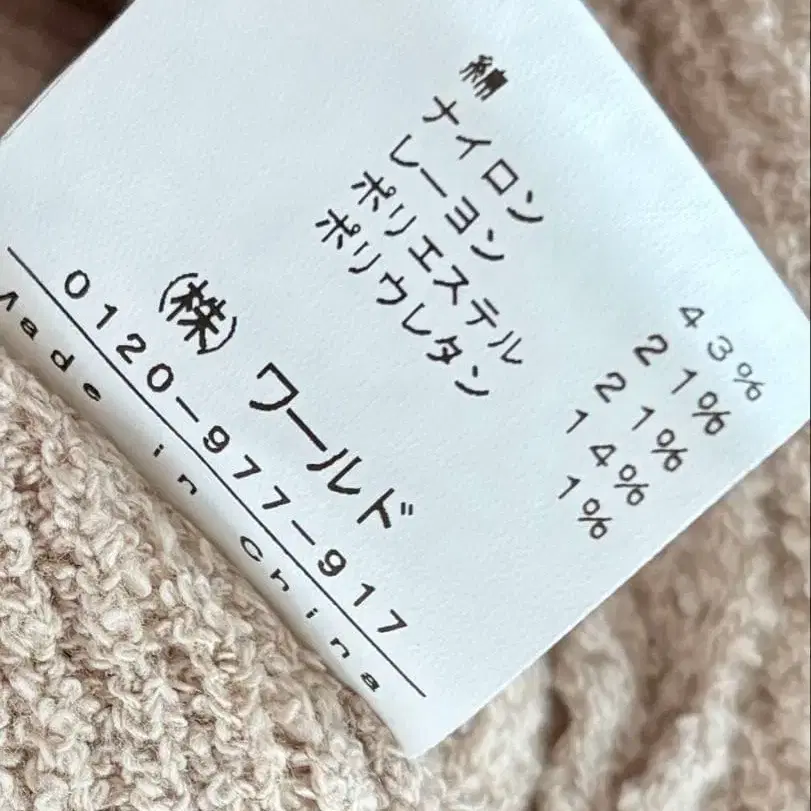 綿 43%
ナイロン 21%
レーヨン 21%
ポリエステル 14%
ポリウレタン 1%
(株)ワールド
0120-977-917
Made in China